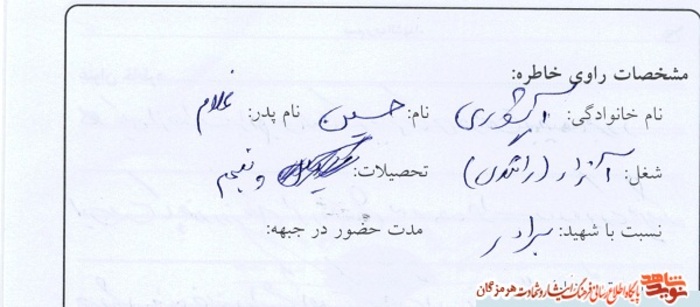 مشخصات راوی خاطره:
نام خانوادگی: کشوری نام: حسین نام پدر: غلام
شغل: آزاد (رانندگی) تحصیلات: پنجم
نسبت با شهید: برادر مدت حضور در جبهه:
نوید شاهد پایگاه اطلاع رسانی فرهنگ ایثار و شهادت هرمزگان